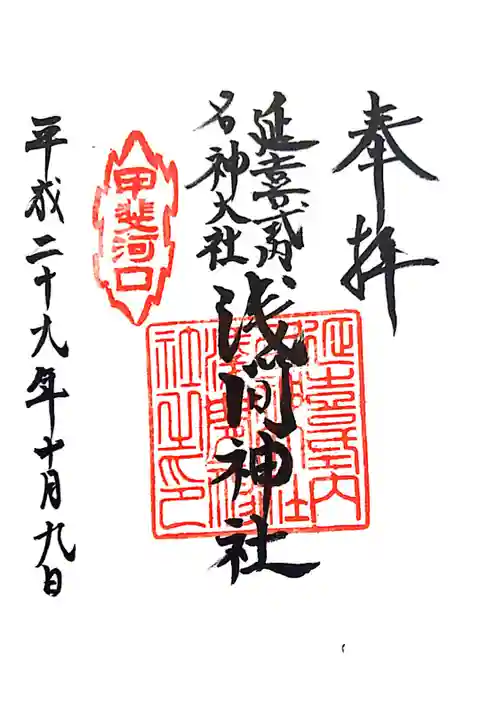 奉拝
延喜式内
名神大社
浅間神社
延喜式内
名神大社
浅間神
社之印
甲斐河口
平成二十九年十月九日